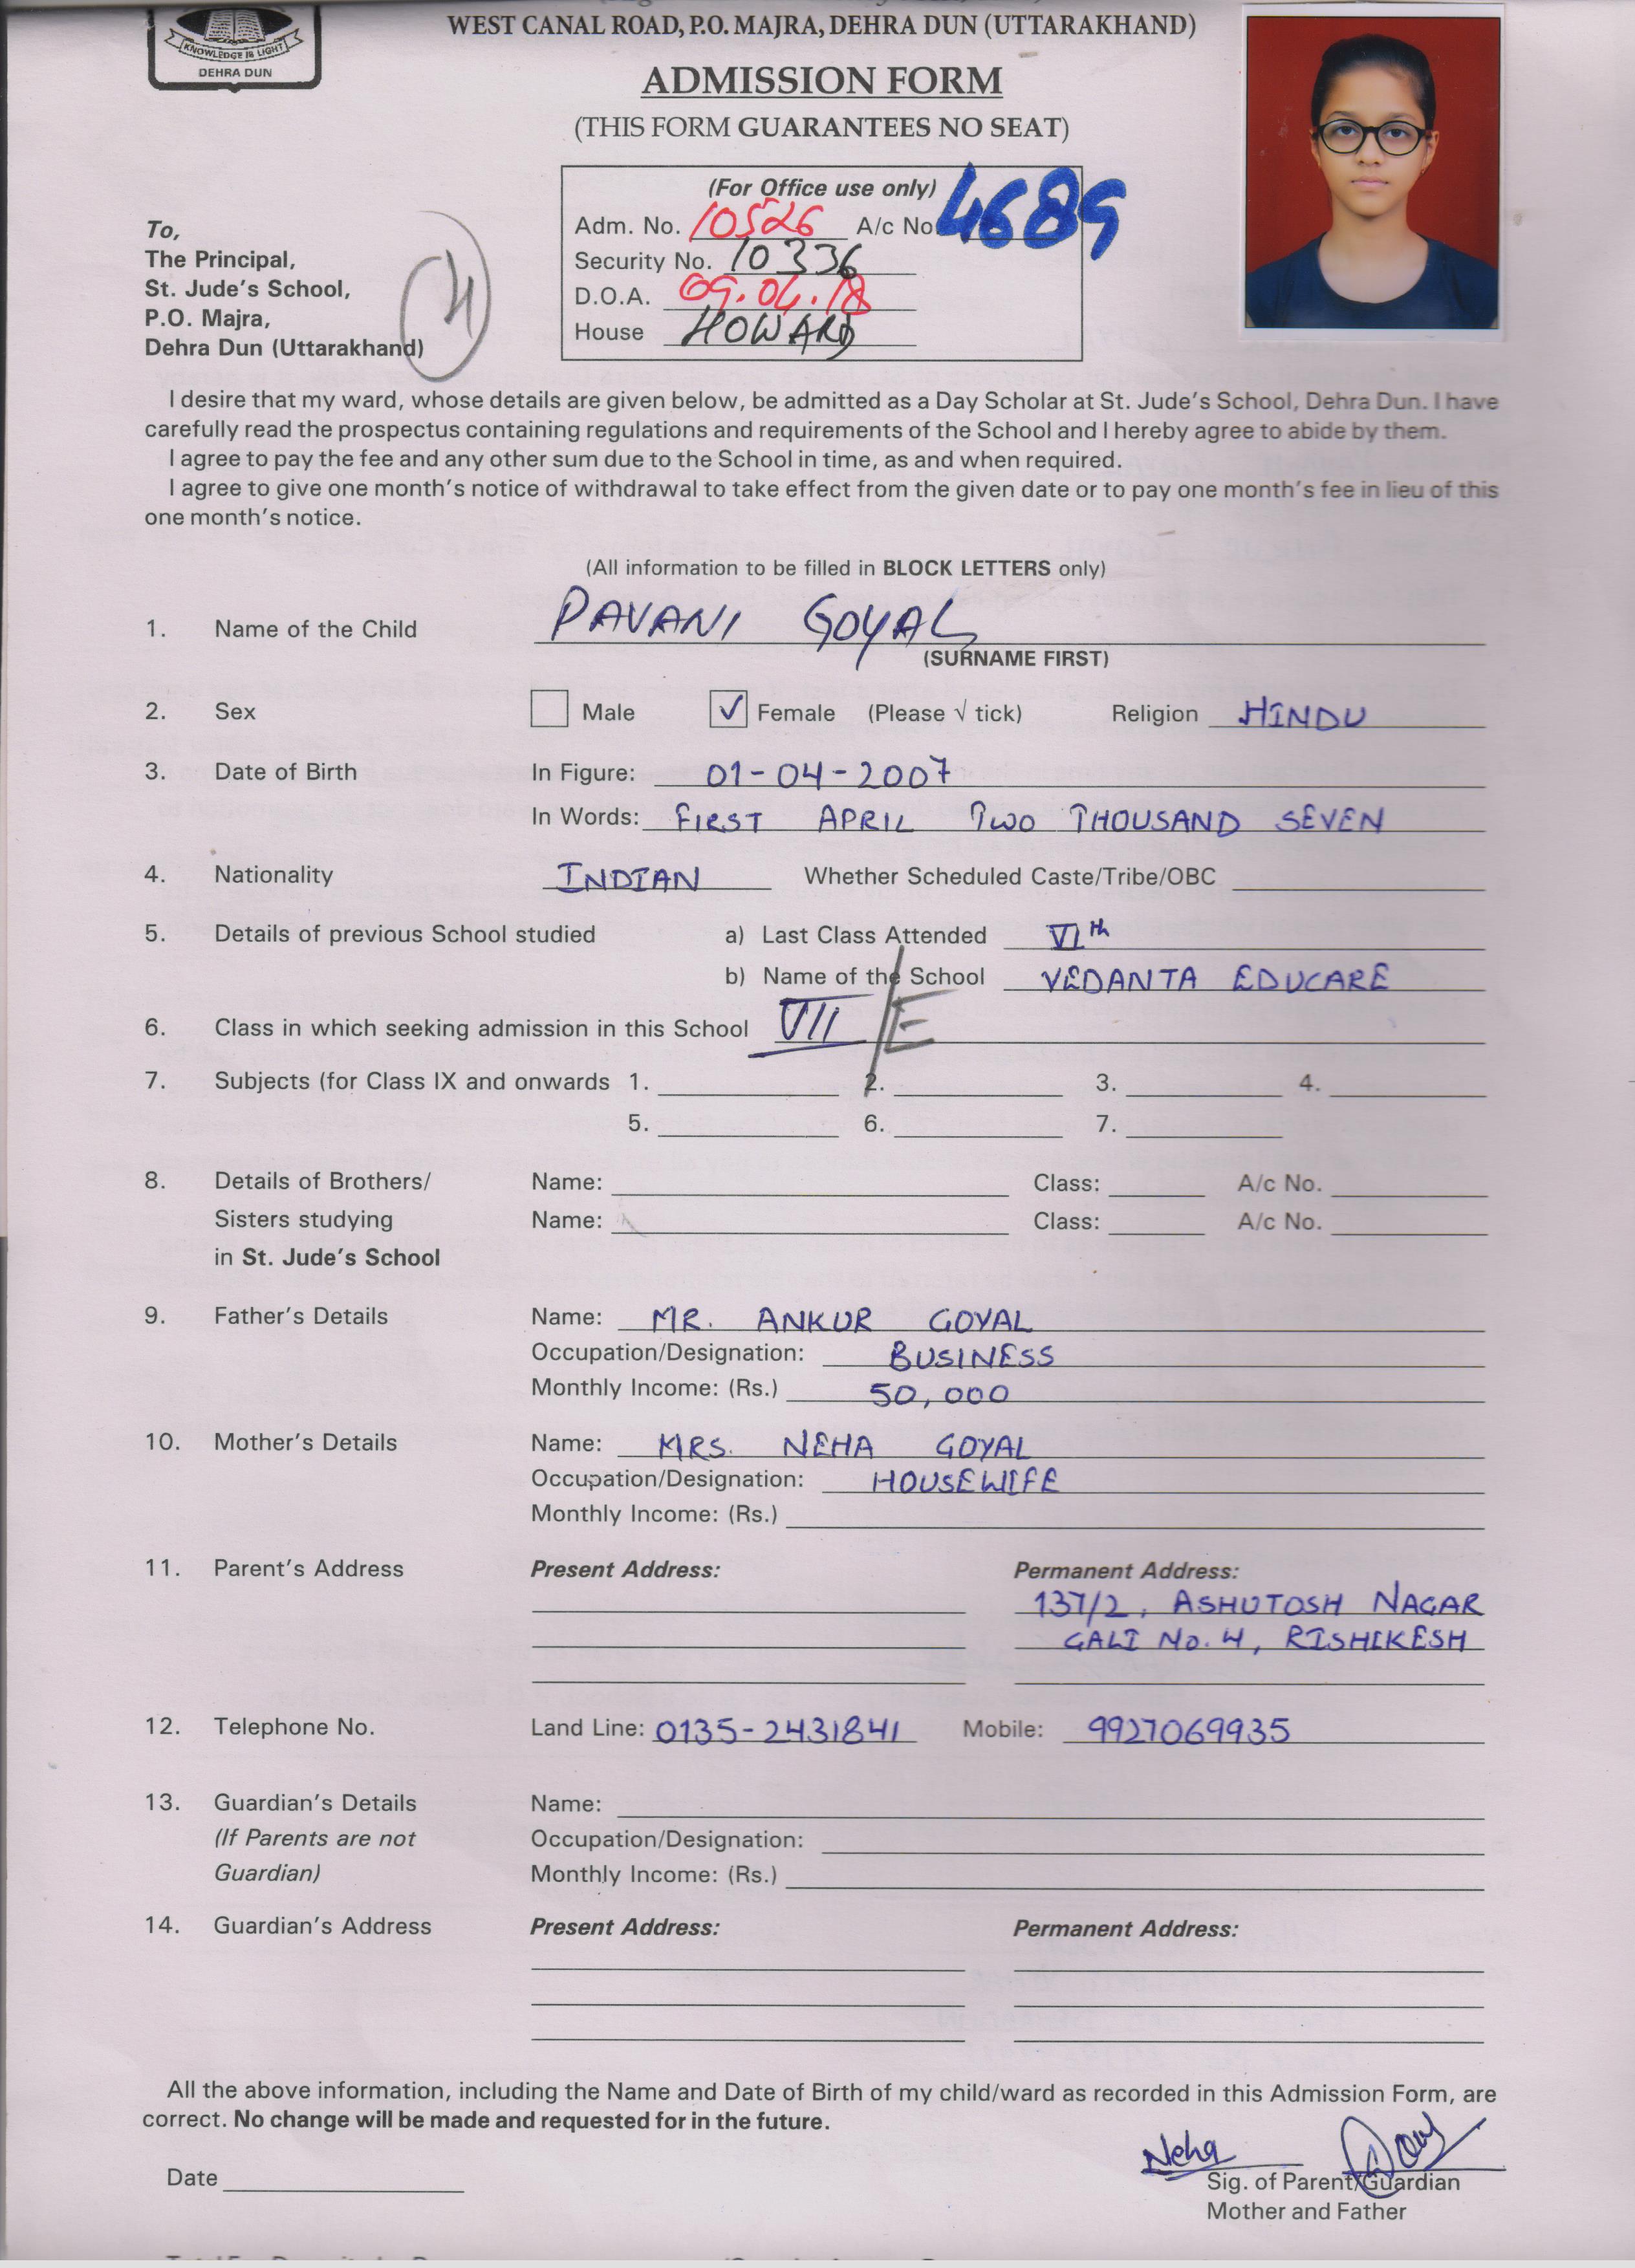 KNOWLEDGE IS LIGHT
DEHRA DUN
WEST CANAL ROAD, P.O. MAJRA, DEHRA DUN (UTTARAKHAND)
ADMISSION FORM
(THIS FORM GUARANTEES NO SEAT)
(For Office use only)
Adm. No. 10526 A/c No. 4689
Security No. 10336
D.O.A. 09.04.18
House HOWARD
To,
The Principal,
St. Jude's School,
P.O. Majra,
Dehra Dun (Uttarakhand)
4
I desire that my ward, whose details are given below, be admitted as a Day Scholar at St. Jude's School, Dehra Dun. I have
carefully read the prospectus containing regulations and requirements of the School and I hereby agree to abide by them.
I agree to pay the fee and any other sum due to the School in time, as and when required.
I agree to give one month's notice of withdrawal to take effect from the given date or to pay one month's fee in lieu of this
one month's notice.
(All information to be filled in BLOCK LETTERS only)
1. Name of the Child PAVANI GOYAL
(SURNAME FIRST)
2. Sex Male ✓ Female (Please √ tick) Religion HINDU
3. Date of Birth In Figure: 01-04-2007
In Words: FIRST APRIL TWO THOUSAND SEVEN
4. Nationality INDIAN Whether Scheduled Caste/Tribe/OBC
5. Details of previous School studied a) Last Class Attended VIth
b) Name of the School VEDANTA EDUCARE
6. Class in which seeking admission in this School VII /E
7. Subjects (for Class IX and onwards 1. 2. 3. 4.
5. 6. 7.
8. Details of Brothers/ Name: Class: A/c No.
Sisters studying Name: Class: A/c No.
in St. Jude's School
9. Father's Details Name: MR. ANKUR GOYAL
Occupation/Designation: BUSINESS
Monthly Income: (Rs.) 50,000
10. Mother's Details Name: MRS. NEHA GOYAL
Occupation/Designation: HOUSEWIFE
Monthly Income: (Rs.)
11. Parent's Address Present Address: Permanent Address:
137/2, ASHUTOSH NAGAR
GALI No. 4, RISHIKESH
12. Telephone No. Land Line: 0135-2431841 Mobile: 9927069935
13. Guardian's Details Name:
(If Parents are not Occupation/Designation:
Guardian) Monthly Income: (Rs.)
14. Guardian's Address Present Address: Permanent Address:
All the above information, including the Name and Date of Birth of my child/ward as recorded in this Admission Form, are
correct. No change will be made and requested for in the future.
Neha
Date Sig. of Parent/Guardian
Mother and Father